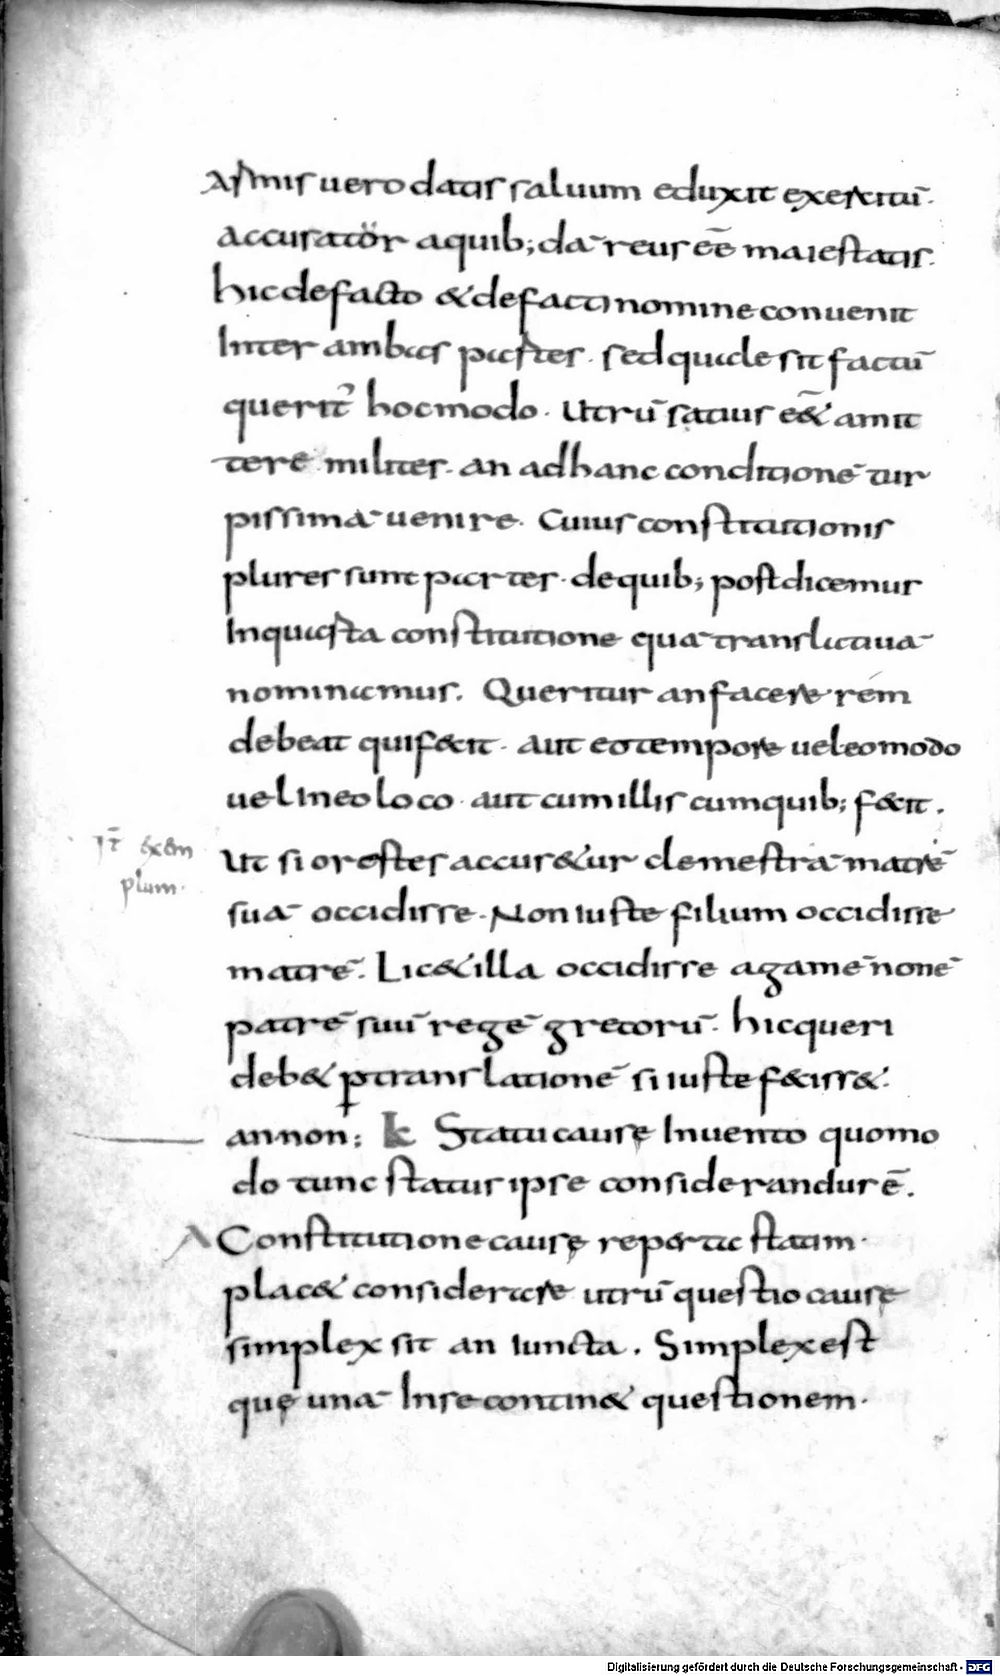 Armis uero datis saluum eduxit exercitū.
accusatör aquib; dā reus eē̄ maiestatis.
hic defacto & defacti nomine conuenit
Inter ambas partes. sed quale sit factū
querit᷒ hocmodo. Utrū satius ē& amit
tere milites. an adhanc conditionē tur
pissimā uenire. Cuius constitutionis
plures sunt partes. dequib; post dicemus
Inquista constitutione quā translatiuā
nominamus. Queritur anfacere rem
debeat quif&it. aut eotempore ueleomodo
uelIneoloco. aut cumillis cumquib; f&it.
Ut si orestes accus&ur clemestrā matrē
suā occidisse. Non iuste filium occidisse
matrē. Lic& illa occidisse agamēnonē
patrē suū regē grecorū. hicqueri
deb& ꝑtranslationē si iuste f&iss&.
annon; k Statu causę Inuento quomo
do tunc status ipse considerandus ē.
A Constitutione causę reperta statim.
plac& considerare utrū questio causę
simplex sit an iuncta. Simplex est
quę unā Inse contin& questionem.
It̄ exem
plum.
Digitalisierung gefördert durch die Deutsche Forschungsgemeinschaft - DFG